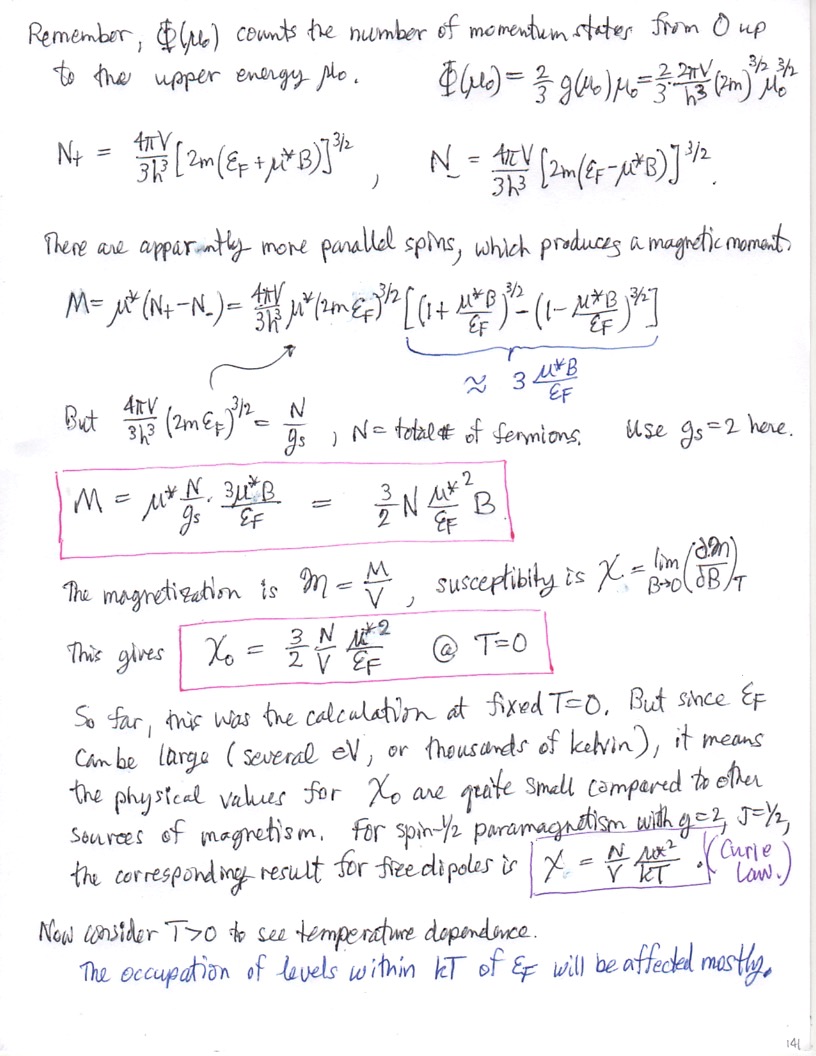 Remember, Φ(μ₀) counts the number of momentum states from 0 up
to the upper energy μ₀. Φ(μ₀) = 2/3 g(μ₀)μ₀ = 2/3 · 2πV/h³ (2m)^3/2 μ₀^3/2
N₊ = 4πV/3h³ [2m(ε_F + μ*B)]^3/2 , N₋ = 4πV/3h³ [2m(ε_F − μ*B)]^3/2 .
There are apparently more parallel spins, which produces a magnetic moment.
M = μ*(N₊ − N₋) = 4πV/3h³ μ*(2m ε_F)^3/2 [(1 + μ*B/ε_F)^3/2 − (1 − μ*B/ε_F)^3/2]
≈ 3 μ*B/ε_F
But 4πV/3h³ (2m ε_F)^3/2 = N/g_s , N = total # of fermions. Use g_s = 2 here.
M = μ* N/g_s · 3μ*B/ε_F = 3/2 N μ*²/ε_F B
The magnetization is 𝓜 = M/V , susceptibity is χ = lim B→0 (∂𝓜/∂B)_T
This gives χ₀ = 3/2 N/V μ*²/ε_F @ T=0
So far, this was the calculation at fixed T=0. But since ε_F
can be large (several eV, or thousands of kelvin), it means
the physical values for χ₀ are quite small compared to other
sources of magnetism. For spin-1/2 paramagnetism with g=2, J=1/2,
the corresponding result for free dipoles is χ = N/V μ*²/kT . (Curie Law.)
Now consider T>0 to see temperature dependence.
The occupation of levels within kT of ε_F will be affected mostly.
141